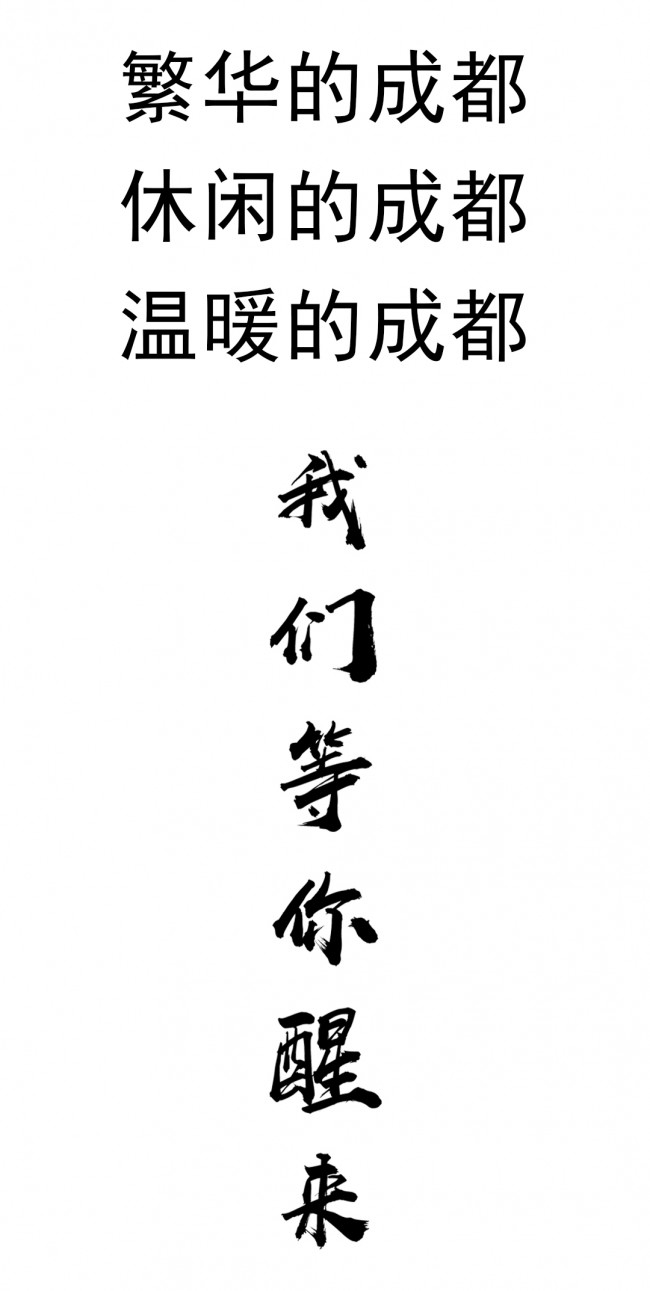 繁华的成都
休闲的成都
温暖的成都
我们等你醒来